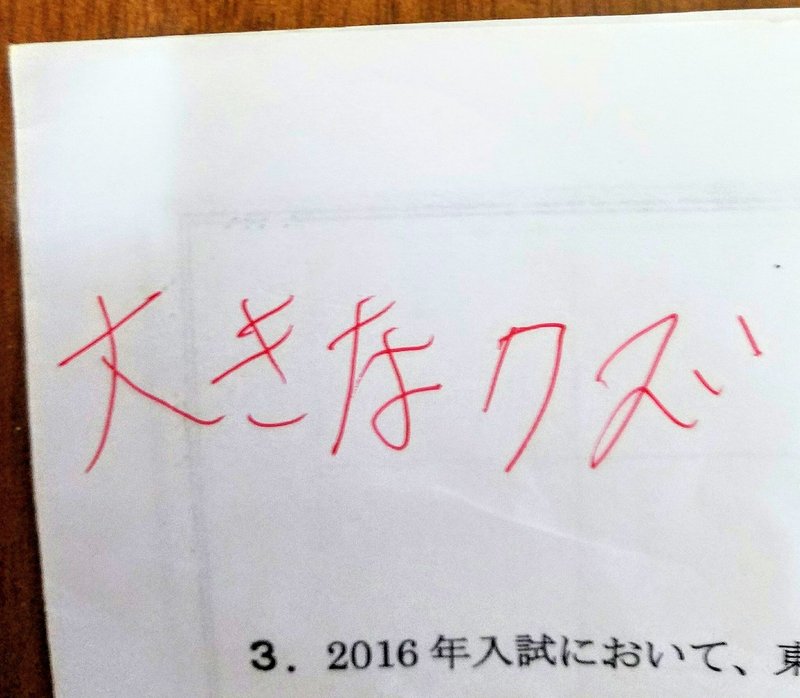 大きなクズ
3. 2016年入試において、東